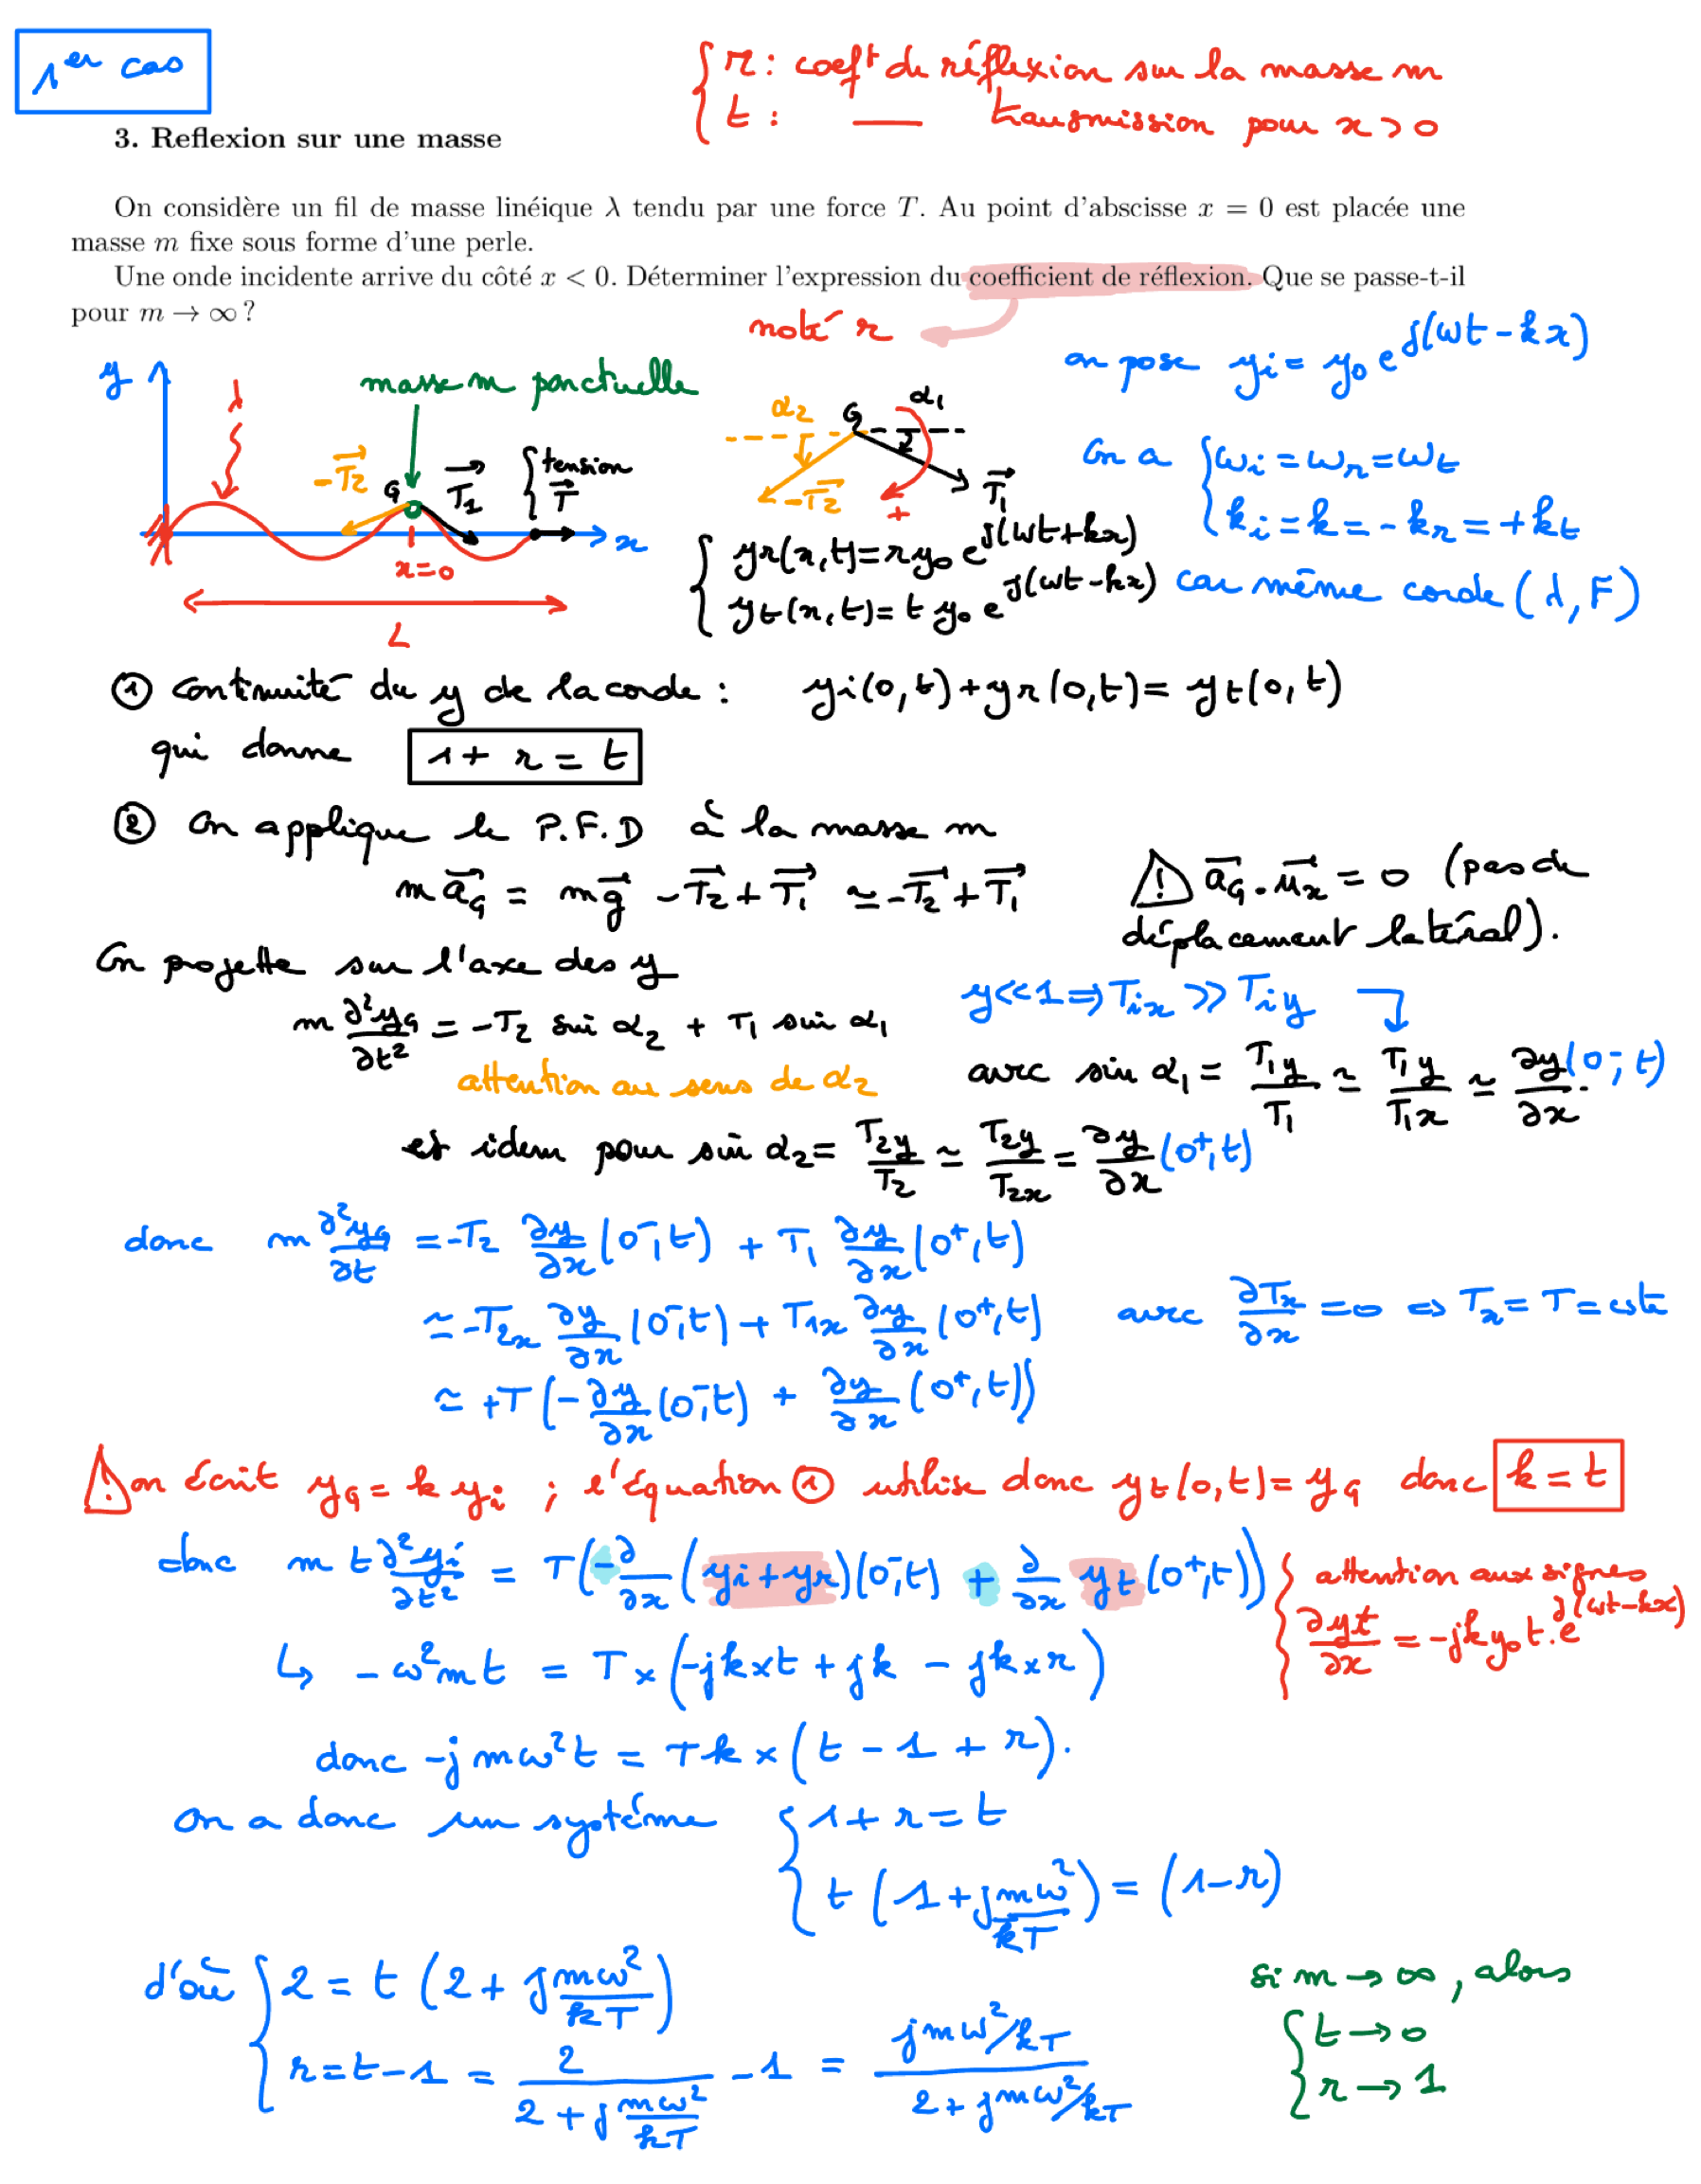 1er cas
r : coeft de réflexion sur la masse m
t : — transmission pour x > 0
3. Reflexion sur une masse
On considère un fil de masse linéique λ tendu par une force T. Au point d'abscisse x = 0 est placée une
masse m fixe sous forme d'une perle.
Une onde incidente arrive du côté x < 0. Déterminer l'expression du coefficient de réflexion. Que se passe-t-il
pour m → ∞ ?
noté r
on pose yi = y0 e^j(ωt - kx)
y
λ
masse m ponctuelle
-T2→
G
T1→
{ tension T→
x
x=0
L
α2
G
α1
-T2→
T1→
+
On a { ωi = ωr = ωt
ki = k = -kr = +kt
car même corde (λ, F)
{ yr(x,t) = r y0 e^j(ωt+kx)
yt(x,t) = t y0 e^j(ωt-kx)
① Continuité du y de la corde : yi(0,t) + yr(0,t) = yt(0,t)
qui donne 1 + r = t
② On applique le P.F.D à la masse m
m aG→ = m g→ - T2→ + T1→ ≃ -T2→ + T1→
⚠ aG→ . ux→ = 0 (pas de
déplacement latéral).
On projette sur l'axe des y
y<<1 ⇒ Tix >> Tiy
m ∂²yG/∂t² = -T2 sin α2 + T1 sin α1
attention au sens de α2
avec sin α1 = T1y/T1 ≃ T1y/T1x ≃ ∂y/∂x (0-, t)
et idem pour sin α2 = T2y/T2 ≃ T2y/T2x = ∂y/∂x (0+, t)
donc m ∂²yG/∂t = -T2 ∂y/∂x (0-, t) + T1 ∂y/∂x (0+, t)
≃ -T2x ∂y/∂x (0-, t) + T1x ∂y/∂x (0+, t) avec ∂Tx/∂x = 0 ⇔ Tx = T = cste
≃ +T (-∂y/∂x (0-, t) + ∂y/∂x (0+, t))
⚠ on écrit yG = k yi ; l'équation ① utilise donc yt(0,t) = yG donc k = t
donc m t ∂²yi/∂t² = T(-∂/∂x (yi + yr)(0-, t) + ∂/∂x yt (0+, t))
{ attention aux signes
∂yt/∂x = -jky0t.e^j(ωt-kx)
↳ -ω²mt = T × (-jk×t + jk - jk×r)
donc -jmω²t = Tk × (t - 1 + r).
On a donc un système { 1 + r = t
t (1 + j mω²/kT) = (1 - r)
d'où { 2 = t (2 + j mω²/kT)
r = t - 1 = 2/(2 + j mω²/kT) - 1 = (jmω²/kT)/(2 + jmω²/kT)
si m → ∞, alors
{ t → 0
r → 1